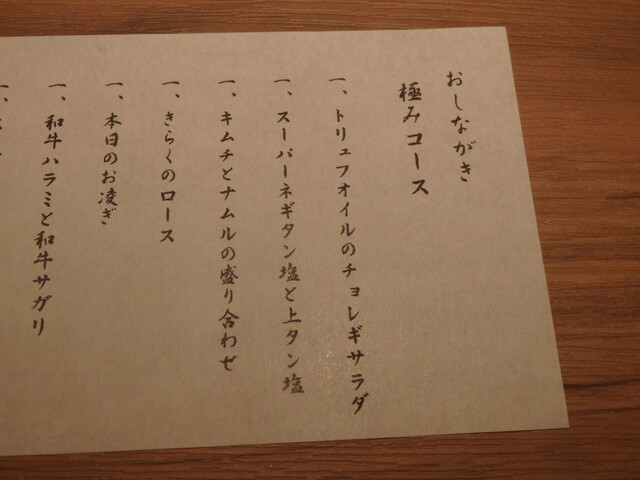 おしながき
極みコース
一、トリュフオイルのチョレギサラダ
一、スーパーネギタン塩と上タン塩
一、キムチとナムルの盛り合わせ
一、きらくのロース
一、本日のお凌ぎ
一、和牛ハラミと和牛サガリ
一、